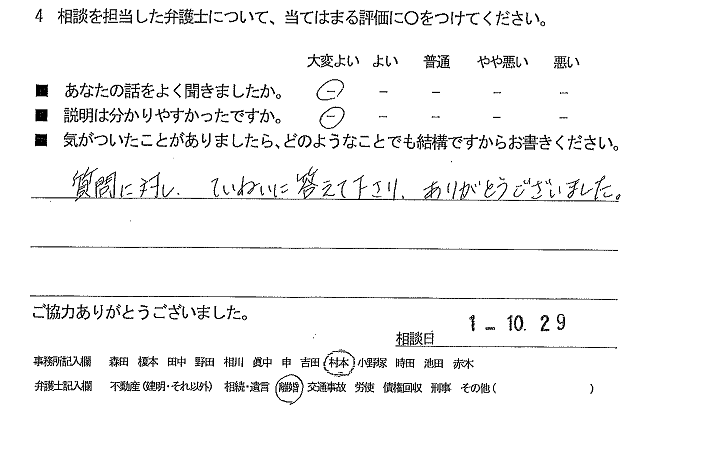 4 相談を担当した弁護士について、当てはまる評価に〇をつけてください。
大変よい よい 普通 やや悪い 悪い
■ あなたの話をよく聞きましたか。 － － － － －
■ 説明は分かりやすかったですか。 － － － － －
■ 気がついたことがありましたら、どのようなことでも結構ですからお書きください。
質問に対し、ていねいに答えて下さり、ありがとうございました。
ご協力ありがとうございました。
相談日 1 - 10. 29
事務所記入欄 森田 榎本 田中 野田 相川 眞中 申 吉田 村本 小野塚 時田 池田 赤木
弁護士記入欄 不動産（建明・それ以外） 相続・遺言 離婚 交通事故 労使 債権回収 刑事 その他（ ）